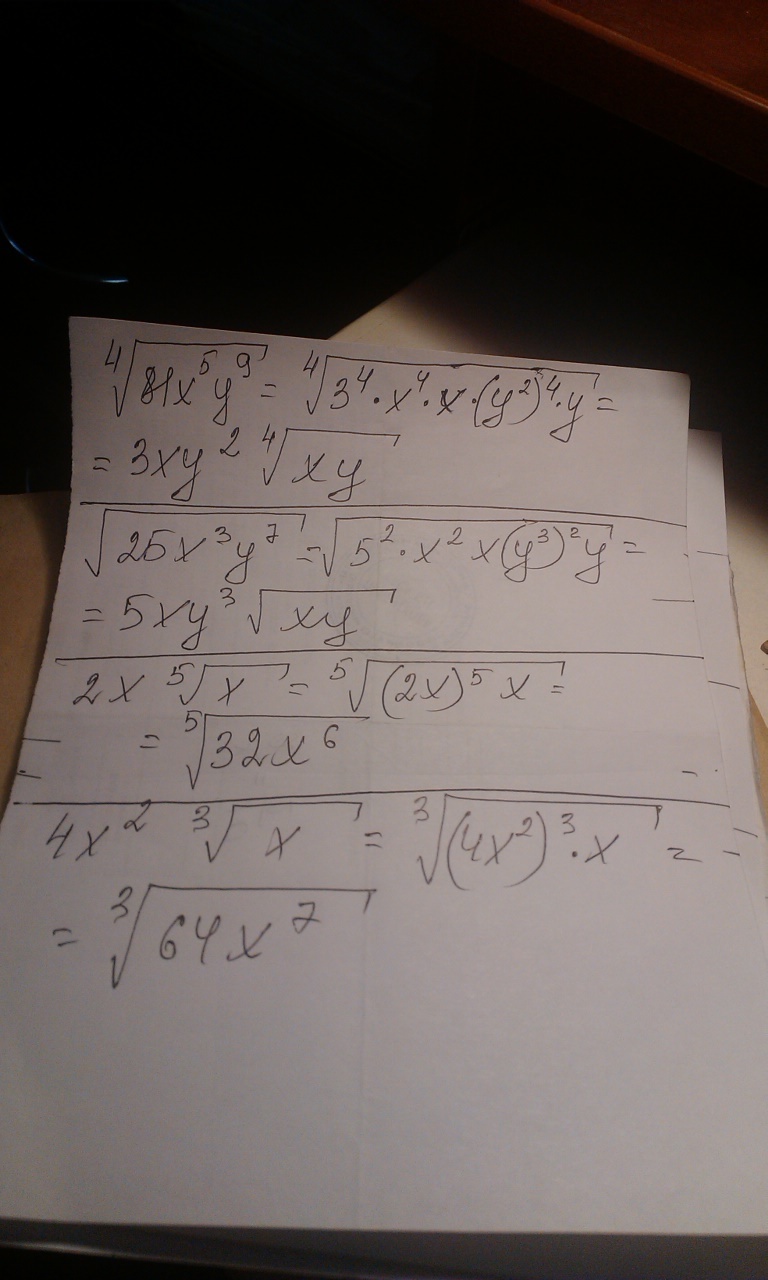 ⁴√(81x⁵y⁹) = ⁴√(3⁴·x⁴·x·(y²)⁴·y) =
= 3xy² ⁴√(xy)
√(25x³y⁷) = √(5²·x²x(y³)²y) =
= 5xy³ √(xy)
2x ⁵√(x) = ⁵√((2x)⁵x) =
= ⁵√(32x⁶)
4x² ³√(x) = ³√((4x²)³·x) =
= ³√(64x⁷)